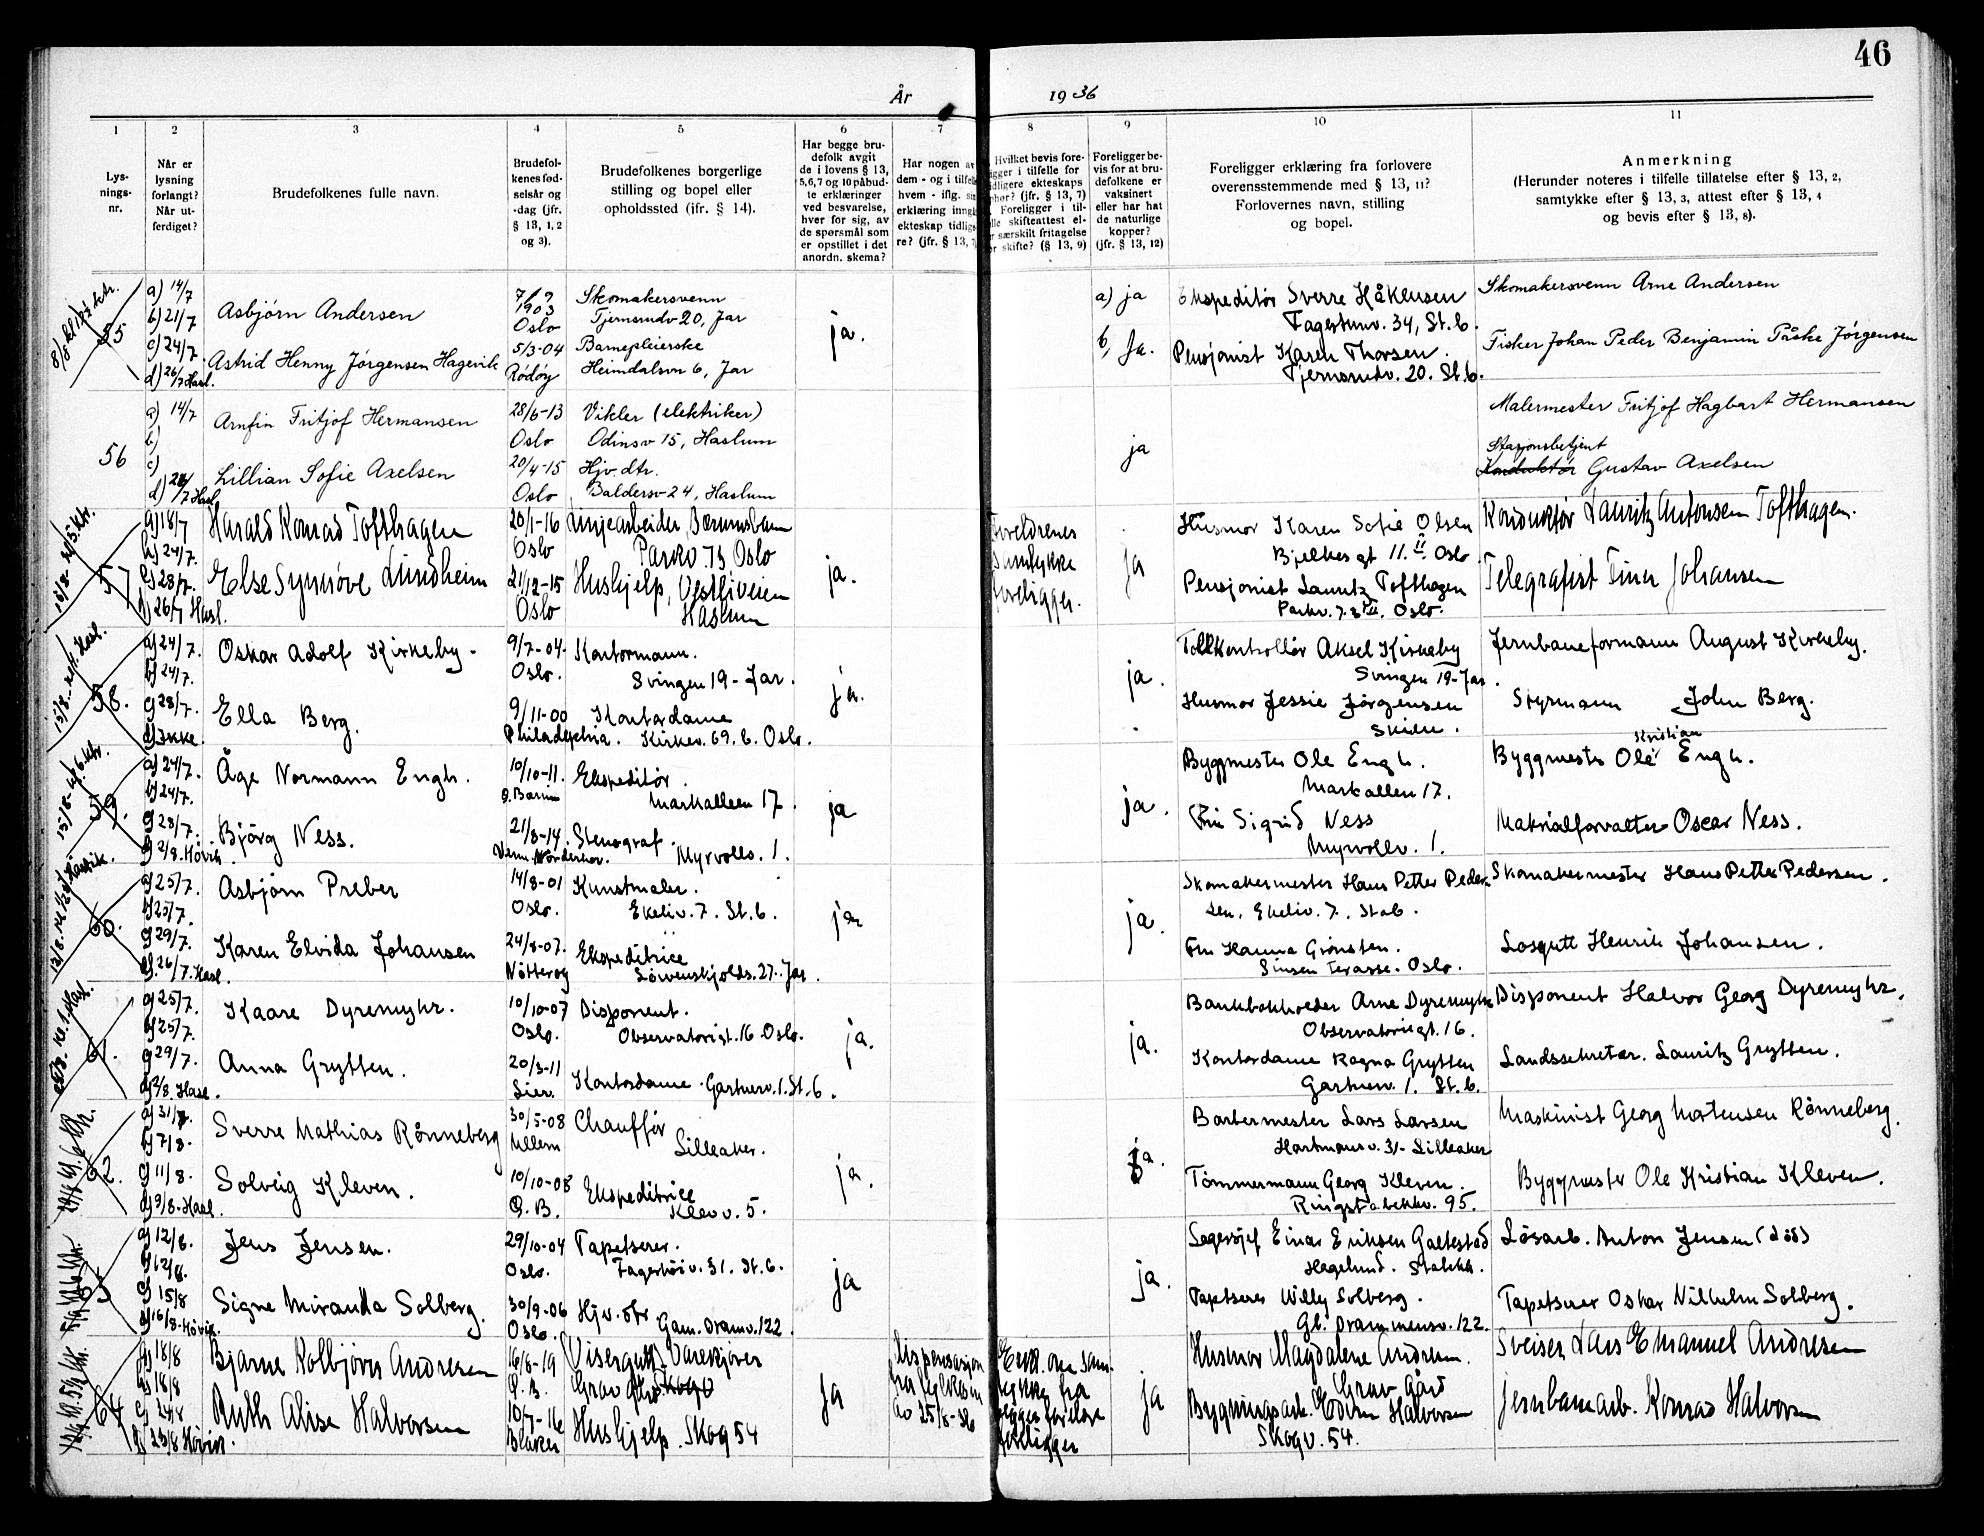 46
År 1936
1 2 3 4 5 6 7 8 9 10 11
Lys-
nings-
nr.
Når er
lysning
forlangt?
Når ut-
ferdiget?
Brudefolkenes fulle navn.
Brudefol-
kenes fød-
selsår og
-dag (jfr.
§ 13, 1, 2
og 3).
Brudefolkenes borgerlige
stilling og bopel eller
opholdssted (ifr. § 14).
Har begge bru-
defolk avgit
de i lovens § 13,
5,6,7 og 10 påbud-
te erklæringer
ved besvarelse,
hver for sig, av
de spørsmål som
er opstillet i det
anordn. skema?
Har nogen av
dem - og i tilfelle
hvem - iflg. sin
erklæring inngå
ekteskap tidlige-
re? (jfr. § 13, 7
Hvilket bevis fore-
igger i tilfelle for
idligere ekteskaps
phør? (jfr. § 13, 7)
Foreligger i til-
lle skifteattest el-
r særskilt fritagelse
or skifte? (§ 13, 9)
Foreligger be-
vis for at bru-
defolkene er
vaksinert
eller har hat
de naturlige
kopper?
(jfr. § 13, 12)
Foreligger erklæring fra forlovere
overensstemmende med § 13, 11?
Forlovernes navn, stilling
og bopel.
Anmerkning
(Herunder noteres i tilfelle tillatelse efter § 13, 2,
samtykke efter § 13, 3, attest efter § 13, 4
og bevis efter § 13, 8).
55
a) 14/7
b) 21/7
c) 24/7
d) 26/7 Hasl.
Asbjørn Andersen
1903
Oslo
Skomakersvenn
Tjernsrudv 20, Jar
Astrid Henny Jørgensen Hagevik
5/3-04
Rødøy
Barnepleierske
Heimdalsvn 6, Jar
ja.
a) ja
b, ja.
Ekspeditør Sverre Håkensen
Fagertunv. 34, St.b.
Pensjonist Karen Thorsen.
Tjernsrudv. 20. St.b.
Skomakersvenn Arne Andersen
Fisker Johan Peder Benjamin Påske Jørgensen
56
a) 14/7
b)
c)
d) 24/7 Hasl.
Arnfin Fritjof Hermansen
28/6-13
Oslo
Vikler (elektriker)
Odinsv 15, Haslum
Lillian Sofie Axelsen
20/4-15
Oslo
Hjv. dtr.
Baldersv 24, Haslum
ja
Malermester Fritjof Hagbart Hermansen
Stasjonsbetjent
Konduktør Gustav Axelsen
57
a) 18/7
b) 24/7.
c) 28/7.
d) 26/7 Hasl.
Harald Konrad Tofthagen
20/1-16
Oslo
Linjearbeider, Bærumsban
Parkv 73 Oslo
Else Synnøve Lundheim
21/12-15
Oslo
Hushjelp, Vestliveien
Haslum
ja.
Foreldrenes
samtykke
foreligger.
ja
Husmor Karen Sofie Olsen
Bjelkes gt 11. II. Oslo
Pensjonist Lauritz Tofthagen
Parkv. 73 III. Oslo.
Konduktør Lauritz Antonsen Tofthagen.
Telegrafist Einar Johansen
58.
a) 24/7.
b) 24/7.
c) 28/7.
d) Ikke.
Oskar Adolf Kirkeby.
9/7-04.
Oslo.
Kontormann.
Svingen 19 - Jar.
Ella Berg.
9/11-00
Philadelphia.
Kontordame
Kirkev. 69. b. Oslo.
ja.
ja.
Tollkontrollør Aksel Kirkeby
Svingen 19-Jar.
Husmor Jessie Jørgensen
Skien.
Jernbaneformann August Kirkeby.
Styrmann John Berg.
59.
a) 24/7.
b) 24/7.
c) 28/7.
d) 2/8. Høvik.
Åge Normann Engh.
10/10-11.
Ø. Bærum
Ekspeditør.
Markalleen 17.
Bjørg Ness.
21/8-14.
Stenograf.
Myrvollv. 1.
ja
ja.
Byggmester Ole Engh.
Markalleen 17.
Fru Sigrid Ness
Myrvollv. 1.
Kristian
Byggmester Ole Engh.
Materialforvalter Oscar Ness.
60.
a) 25/7.
b) 25/7.
c) 29/7.
d) 26/7. Hasl.
Asbjørn Preber
14/8-01
Oslo.
Kunstmaler.
Ekeliv. 7. St. b.
Karen Elvida Johansen
24/8-07.
Nøtterøy
Ekspeditrice
Løwenskjolds. 27. Jar.
ja
ja.
Skomakermester Hans Petter Peder-
sen, Ekeliv. 7. Stab.
Fru Hanna Grønsten.
Sinsen Terasse. Oslo.
Skomakermester Hans Petter Pedersen.
Losgutt Henrik Johansen.
61.
a) 25/7.
b) 25/7.
c) 29/7.
d) 2/8. Hasl.
Kaare Dyremyhr.
10/10-07
Oslo.
Disponent.
Observatorigt. 16. Oslo.
Anna Grytten.
20/3-11
Lier.
Kontordame. Gartnerv. 1. St. b.
ja.
ja.
Bankbokholder Arne Dyremyhr
Observatoriegt. 16.
Kontordame Ragna Grytten
Gartnerv. 1. St. b.
Disponent Halvor Georg Dyremyhr.
Landssekretær. Lauritz Grytten.
62.
a) 31/7.
b) 7/8.
c) 11/8.
d) 9/8. Hasl.
Sverre Mathias Rønneberg
30/5-08
Ullern
Chauffør
Lilleaker.
Solveig Kleven.
10/10-08
Ø. B.
Ekspeditrice
Klevv. 5.
ja.
ja.
Barbermester Lars Larsen
Hartmannv. 31. Lilleaker
Tømmermann Georg Kleven.
Ringstabekkv. 95.
Maskinist Georg Mortensen Rønneberg.
Byggmester Ole Kristian Kleven.
63
a) 12/8.
b) 12/8.
c) 15/8
d) 16/8. Høvik.
Jens Jensen.
29/10-04
Oslo.
Tapetserer.
Fagerhøiv. 31. St. b.
Signe Miranda Solberg.
30/9-06
Oslo.
Hjv. dtr
Gam. Dramv. 122.
ja
ja.
Lagersjef Einar Eriksen Galtestad
Høgelund. Stabekk.
Tapetserer Willy Solberg.
Gl. Drammensv. 122.
Løsarb. Anton Jensen (død)
Tapetserer Oskar Wilhelm Solberg.
64
a) 18/8
b) 18/8
c) 24/8
d) 23/8 Høvik.
Bjarne Kolbjørn Andresen
16/8-19
Ø. B.
Visergutt. Varekjører
Grav gård
Ruth Alise Halvorsen
10/7-16
Blaker
Hushjelp. Skog 54
ja
Dispensasjon
fra fylkesm.
av 25/8-36
Erkl. om sam-
tykke fra
begges foreldre
foreligger
ja
Husmor Magdalene Andresen.
Grav Gård
Bygningsarb. Edvin Halvorsen
Skogv. 54.
Sveiser Lars Emanuel Andresen
Jernbanearb. Konrad Halvorsen